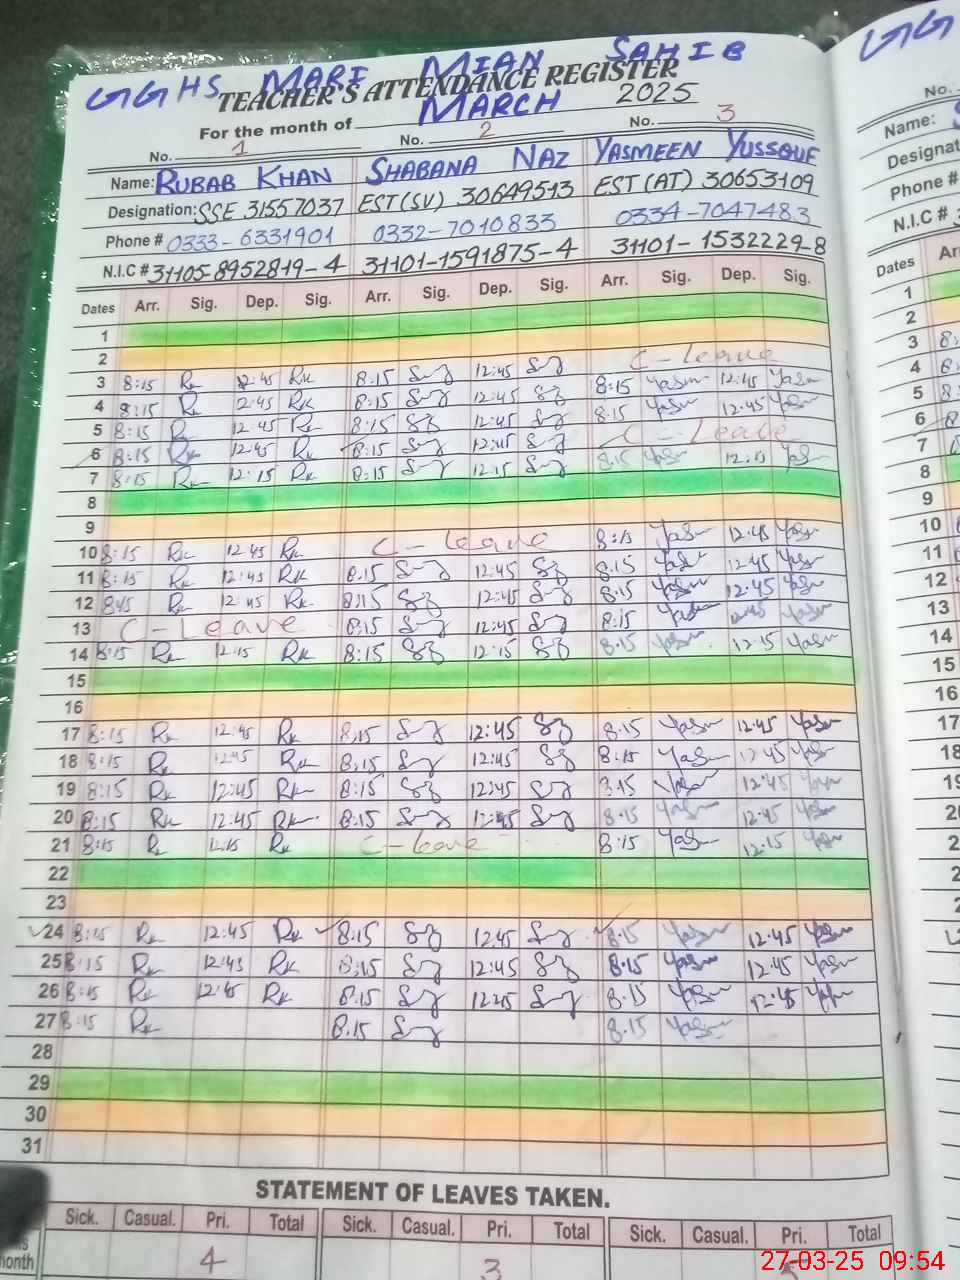 GGHS MARI MIAN SAHIB
TEACHER'S ATTENDANCE REGISTER
For the month of MARCH 2025
No. 1 No. 2 No. 3
Name: RUBAB KHAN SHABANA NAZ YASMEEN YUSSOUF
Designation: SSE 31557037 EST(SV) 30649513 EST(AT) 30653109
Phone # 0333-6331901 0332-7010833 0334-7047483
N.I.C # 31105-8952819-4 31101-1591875-4 31101-1532229-8
Dates Arr. Sig. Dep. Sig. Arr. Sig. Dep. Sig. Arr. Sig. Dep. Sig.
1
2
3 8:15 Rk 12:45 Rk 8:15 12:45 C-Leave
4 8:15 Rk 2:45 Rk 8:15 12:45 8:15 Yasm 12:45 Yasm
5 8:15 R 12:45 Rk 8:15 12:45 8:15 Yasm 12:45 Yasm
6 8:15 Rk 12:45 Rk 8:15 12:45 C-Leave
7 8:15 Rk 12:15 Rk 8:15 12:15 8:15 Yasm 12:15 Yasm
8
9
10 8:15 Rk 12:45 Rk C-Leave 8:15 Yasm 12:45 Yasm
11 8:15 Rk 12:45 Rk 8:15 12:45 8:15 Yasm 12:45 Yasm
12 8:45 Rk 12:45 Rk 8:15 12:45 8:15 Yasm 12:45 Yasm
13 C-Leave 8:15 12:45 8:15 Yasm 12:45 Yasm
14 8:15 Rk 12:15 Rk 8:15 12:15 8:15 Yasm 12:15 Yasm
15
16
17 8:15 Rk 12:45 Rk 8:15 12:45 8:15 Yasm 12:45 Yasm
18 8:15 Rk 12:45 Rk 8:15 12:45 8:15 Yasm 12:45 Yasm
19 8:15 Rk 12:45 Rk 8:15 12:45 8:15 Yasm 12:45 Yasm
20 8:15 Rk 12:45 Rk 8:15 12:45 8:15 Yasm 12:45 Yasm
21 8:15 Rk 12:15 Rk C-leave 8:15 Yasm 12:15 Yasm
22
23
24 8:15 Rk 12:45 Rk 8:15 12:45 8:15 Yasm 12:45 Yasm
25 8:15 Rk 12:45 Rk 8:15 12:45 8:15 Yasm 12:45 Yasm
26 8:15 Rk 12:45 Rk 8:15 12:45 8:15 Yasm 12:45 Yasm
27 8:15 Rk 8:15 8:15 Yasm
28
29
30
31
STATEMENT OF LEAVES TAKEN.
Sick. Casual. Pri. Total Sick. Casual. Pri. Total Sick. Casual. Pri. Total
month 4 3
27-03-25 09:54
GG
No.
Name:
Designat
Phone #
N.I.C #
Dates Ar
1
2
3
4
5
6
7
8
9
10
11
12
13
14
15
16
17
18